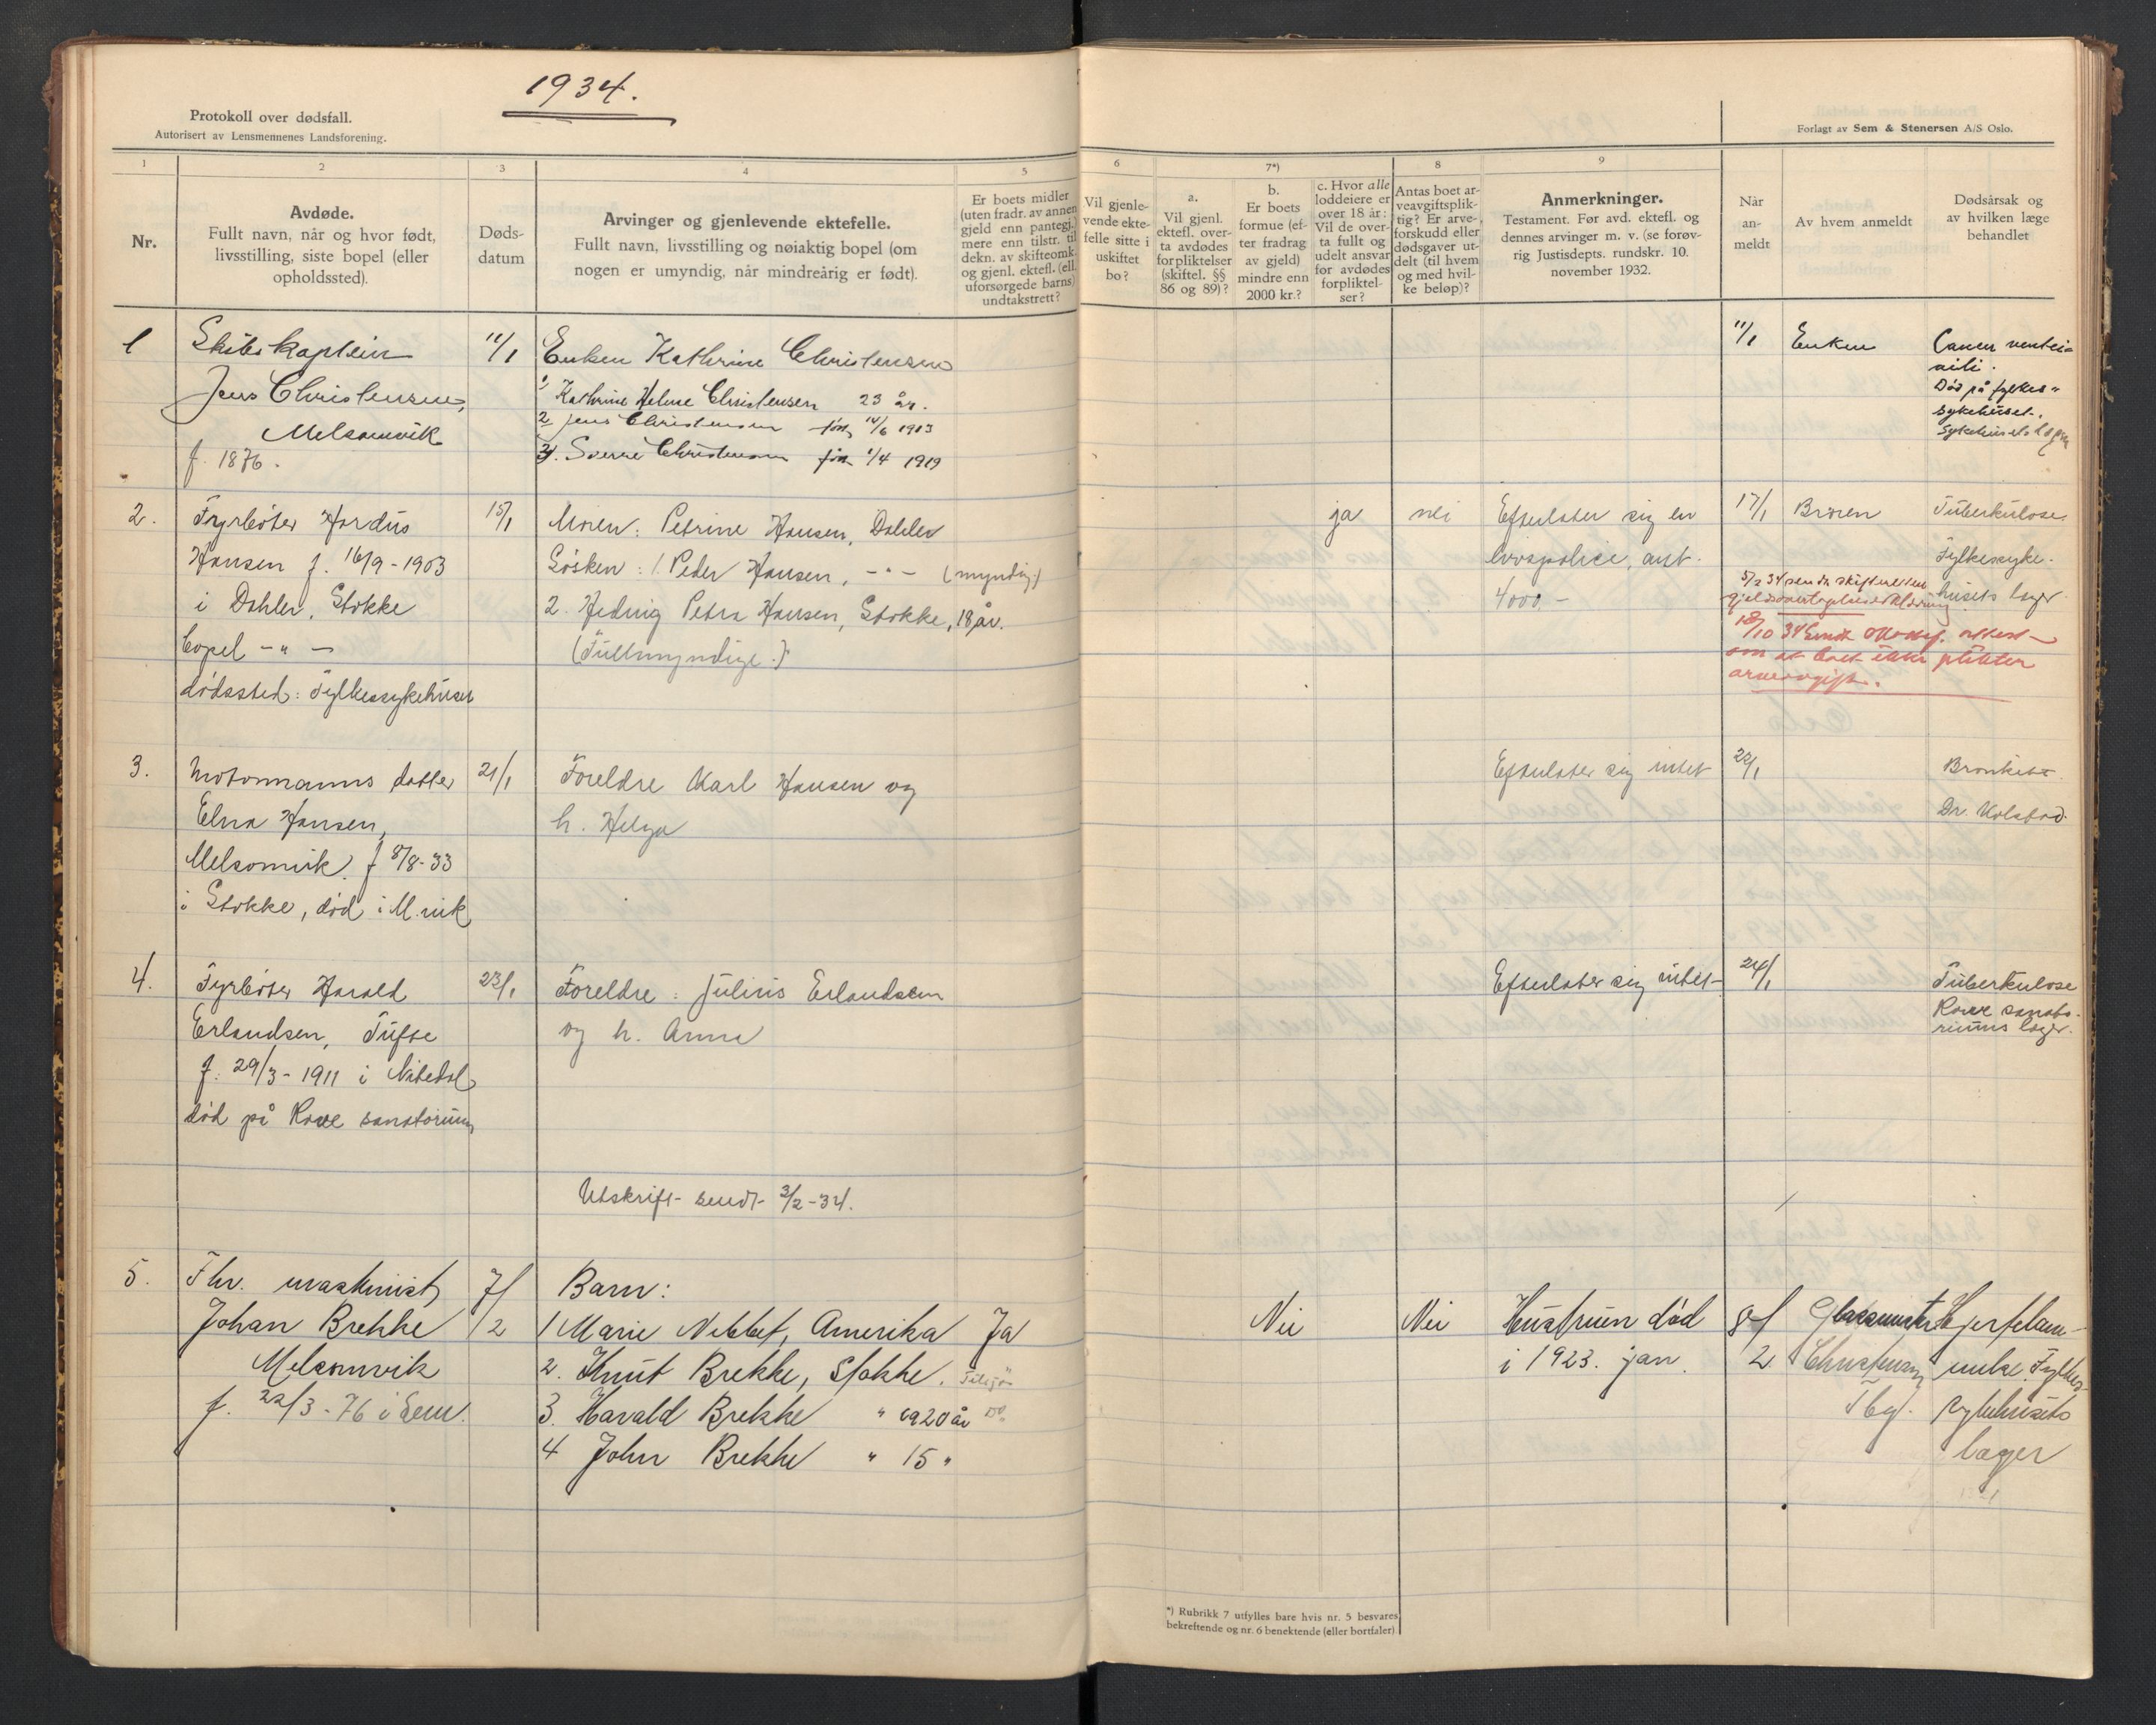 1934.
Protokoll over dødsfall.
Autorisert av Lensmennenes Landsforening.
Forlagt av Sem & Stenersen A/S Oslo.
1
2
3
4
5
6
7*)
8
9
Nr.
Avdøde.
Fullt navn, når og hvor født,
livsstilling, siste bopel (eller
opholdssted).
Døds-
datum
Arvinger og gjenlevende ektefelle.
Fullt navn, livsstilling og nøiaktig bopel (om
nogen er umyndig, når mindreårig er født).
Er boets midler
(uten fradr. av annen
gjeld enn pantegj.)
mere enn tilstr. til
dekn. av skifteomk.
og gjenl. ektefl. (ell.
uforsørgede barns)
undtakstrett?
Vil gjenle-
vende ekte-
felle sitte i
uskiftet
bo?
a.
Vil gjenl.
ektefl. over-
ta avdødes
forpliktelser
(skiftel. §§
86 og 89)?
b.
Er boets
formue (ef-
ter fradrag
av gjeld)
mindre enn
2000 kr.?
c. Hvor alle
loddeiere er
over 18 år:
Vil de over-
ta fullt og
udelt ansvar
for avdødes
forpliktel-
ser?
Antas boet ar-
veavgiftsplik-
tig? Er arve-
forskudd eller
dødsgaver ut-
delt (til hvem
og med hvil-
ke beløp)?
Anmerkninger.
Testament. Før avd. ektefl. og
dennes arvinger m. v. (se forøv-
rig Justisdepts. rundskr. 10.
november 1932.
Når
an-
meldt
Av hvem anmeldt
Dødsårsak og
av hvilken læge
behandlet
1
Skibskaptein
Jens Christensen,
Melsomvik
f. 1876.
11/1
Enken Kathrine Christensen
1/ Kathrine Helene Christensen 23 år.
2 Jens Christensen født 14/6 1913
3. Sverre Christensen født 1/4 1919
11/1
Enken
Cancer
Død på fylkes-
sykehuset.
Sykehusets læge
2.
Fyrbøter Hardus
Hansen f. 16/9-1903
i Dahler, Stokke
bopel -"-
dødssted: Fylkessykehuset
15/1
Moren: Petrine Hansen, Dahler
Søsken: 1. Peder Hansen, -"- (myndig)
2. Hedvig Petra Hansen, Stokke, 18 år.
(Fullmyndige.)
ja
nei
Efterlater sig en
livspolice, ant.
4000,-
17/1
Broren
Tuberkulose.
Fylkesyke-
husets læger
5/2 34 sendt skifteretten
gjeldsovertagelseserklæring
18/10 34 Sendt attest
om at boet ikke plikter
arveavgift.
3.
Motormanns datter
Elna Hansen,
Melsomvik. f 8/8-33
i Stokke, død i M.vik
21/1
Foreldre Karl Hansen og
h. Helga
Efterlater sig intet
22/1
Bronkit
Dr. Kolstad.
4.
Fyrbøter Harald
Erlandsen, Tufte
f. 29/3-1911 i Nøtedal
død på Rove sanatorium
23/1
Foreldre: Julius Erlandsen
og h. Anna
Efterlater sig intet
24/1
Tuberkulose
Rove sanato-
riums læger.
Utskrift sendt 3/2-34.
5.
Fhv. maskinist
Johan Brekke
Melsomvik
f. 22/3-76 i Sem.
7/2
Barn:
1 Marie Amerika Ja
2. Knut Brekke, Stokke.
3. Harald Brekke " ca 20 år
4 John Brekke " 15 "
Nei
Nei
Hustruen død
i 1923. jan.
8/2
Glassmester
Christensen
Tbg.
Hjertelam-
melse. Fylkes-
sykehusets
læger
*) Rubrikk 7 utfylles bare hvis nr. 5 besvares
bekreftende og nr. 6 benektende (eller bortfaler).